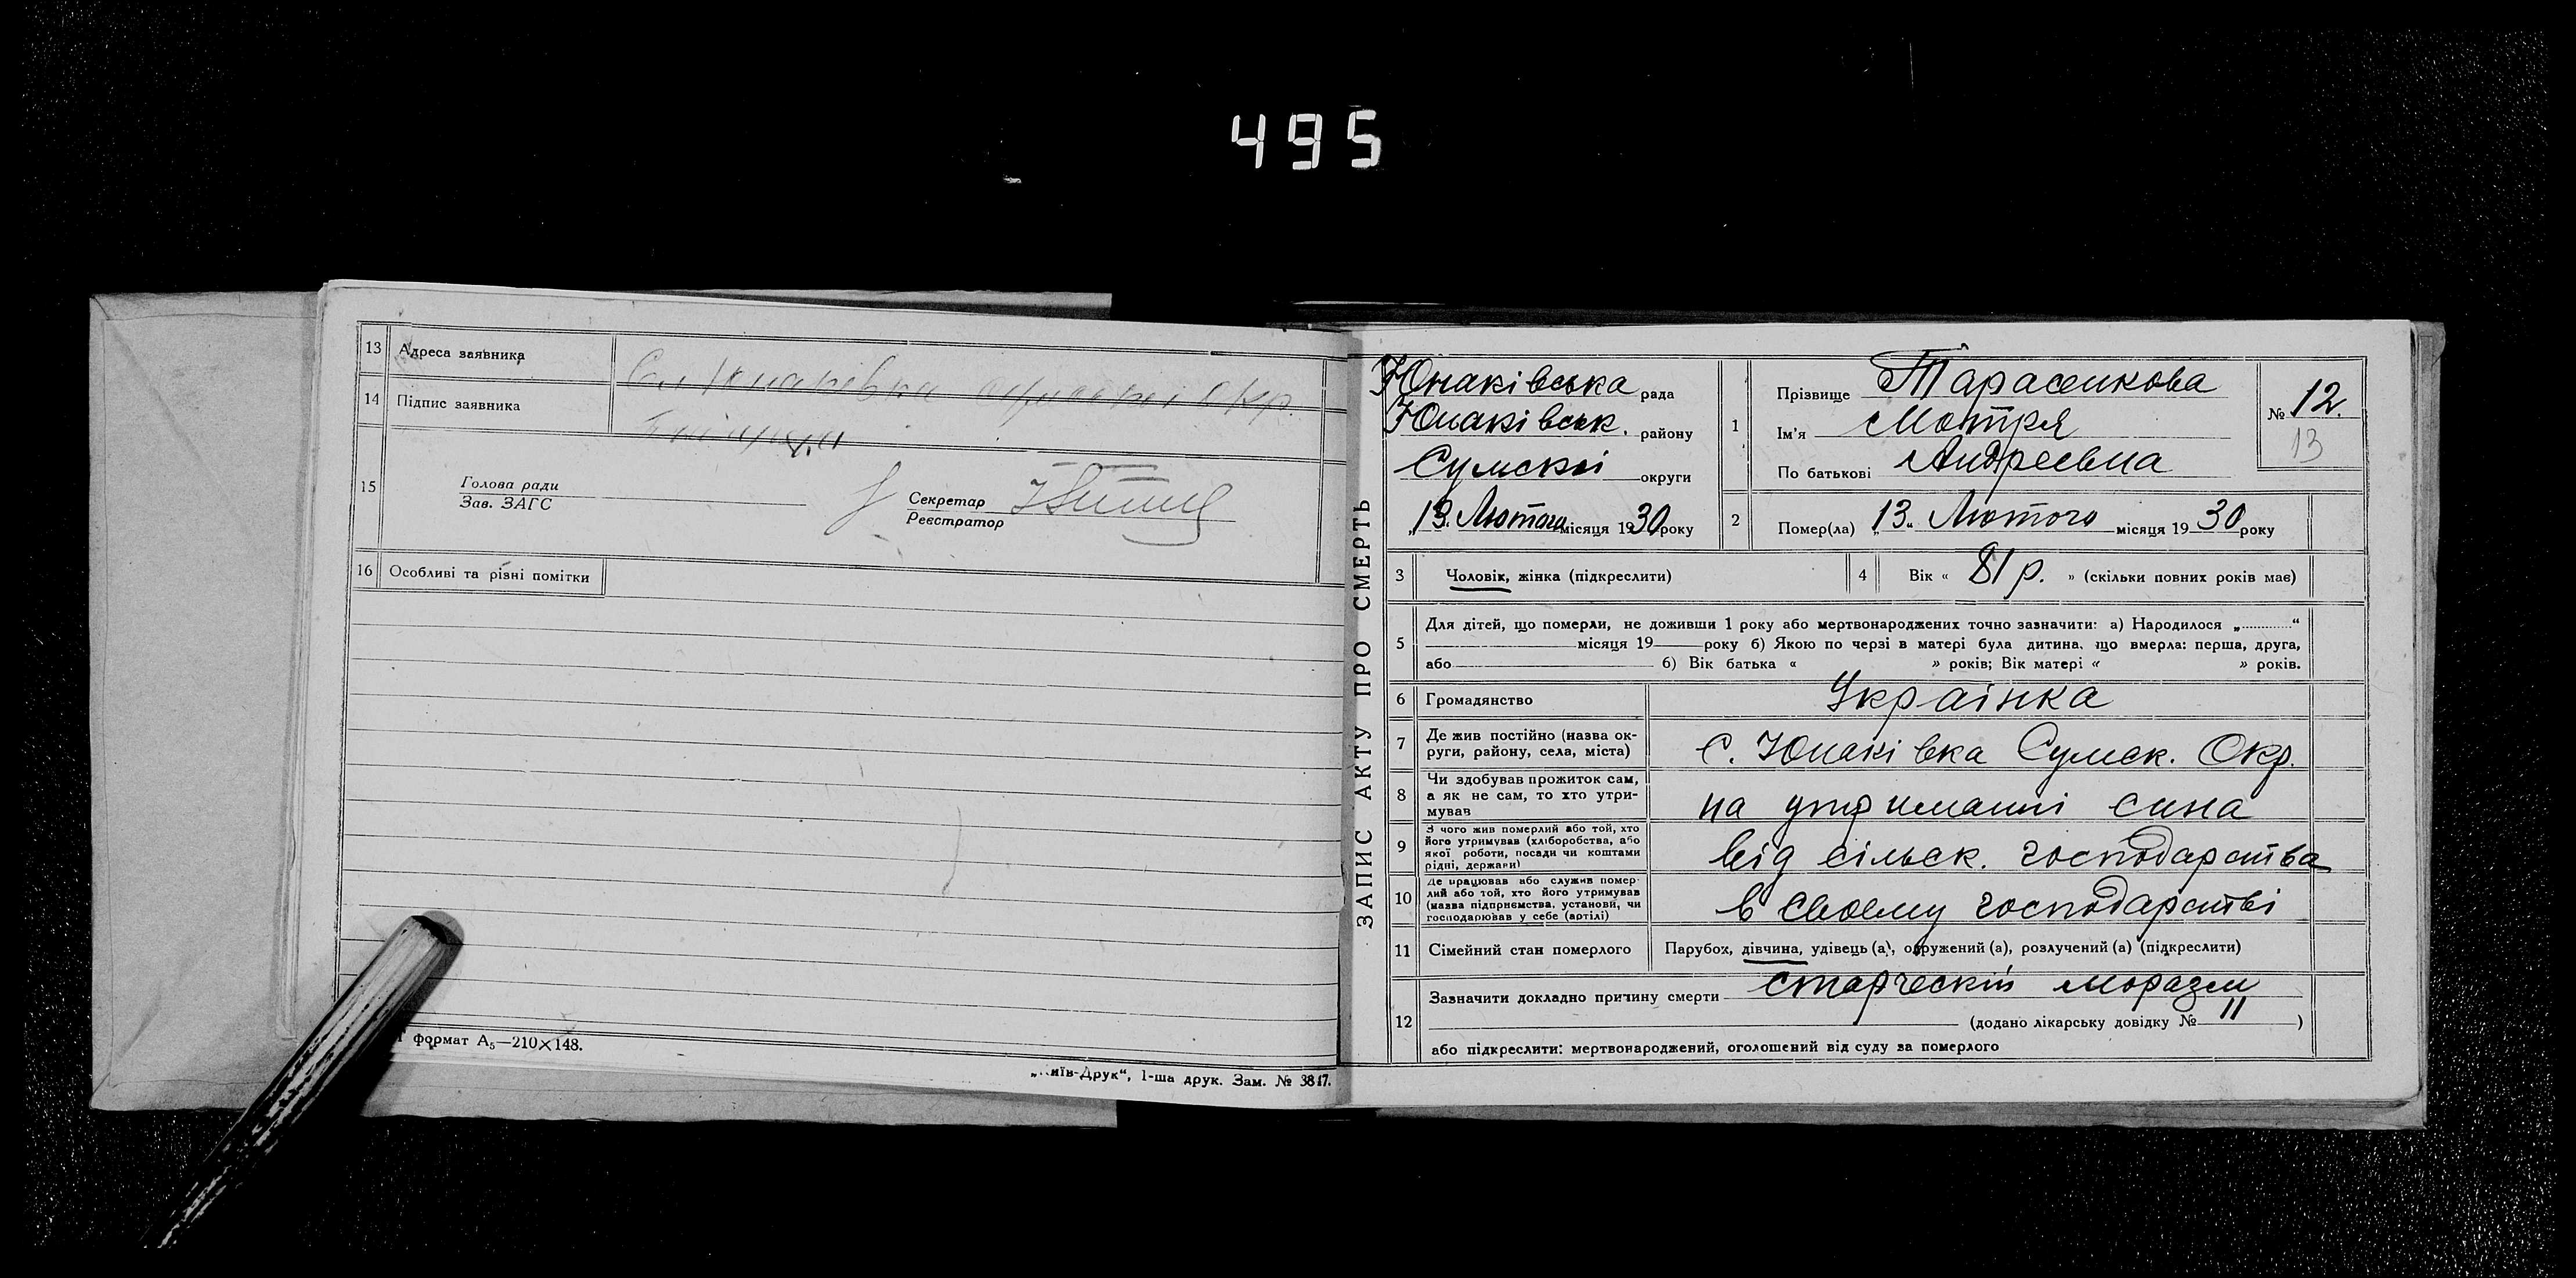 495
13 Адреса заявника С. Юнаківка Сумської Окр.
14 Підпис заявника
15 Голова ради
Зав. ЗАГС
Секретар
Реєстратор
16 Особливі та різні помітки
формат А5—210×148.
„Київ-Друк“, 1-ша друк. Зам. № 3817.
ЗАПИС АКТУ ПРО СМЕРТЬ
Юнаківська рада
Юнаківськ. району
Сумскої округи
„13„ Лютого місяця 1930 року
1 Прізвище Тарасенкова
Ім'я Мотря
По батькові Андреєвна
№ 12.
13
2 Помер(ла) „13„ Лютого місяця 1930 року
3 Чоловік, жінка (підкреслити)
4 Вік « 81 р. » (скільки повних років має)
5 Для дітей, що померли, не доживши 1 року або мертвонароджених точно зазначити: а) Народилося „............“
місяця 19 року б) Якою по черзі в матері була дитина, що вмерла: перша, друга,
або б) Вік батька « » років; Вік матері « » років.
6 Громадянство Украінка
7 Де жив постійно (назва ок-
руги, району, села, міста) с. Юнаківка Сумск. Окр.
8 Чи здобував прожиток сам,
а як не сам, то хто утри-
мував на утриманні сина
9 З чого жив померлий або той, хто
його утримував (хліборобства, або
якої роботи, посади чи коштами
рідні, держави) від сільск. господарства
10 Де працював або служив помер-
лий або той, хто його утримував
(назва підприємства, установи, чи
господарював у себе (артілі) в своєму господарстві
11 Сімейний стан померлого Парубок, дівчина, удівець (а), одружений (а), розлучений (а) (підкреслити)
12 Зазначити докладно причину смерти старческій моразм
(додано лікарську довідку № 11 )
або підкреслити: мертвонароджений, оголошений від суду за померлого